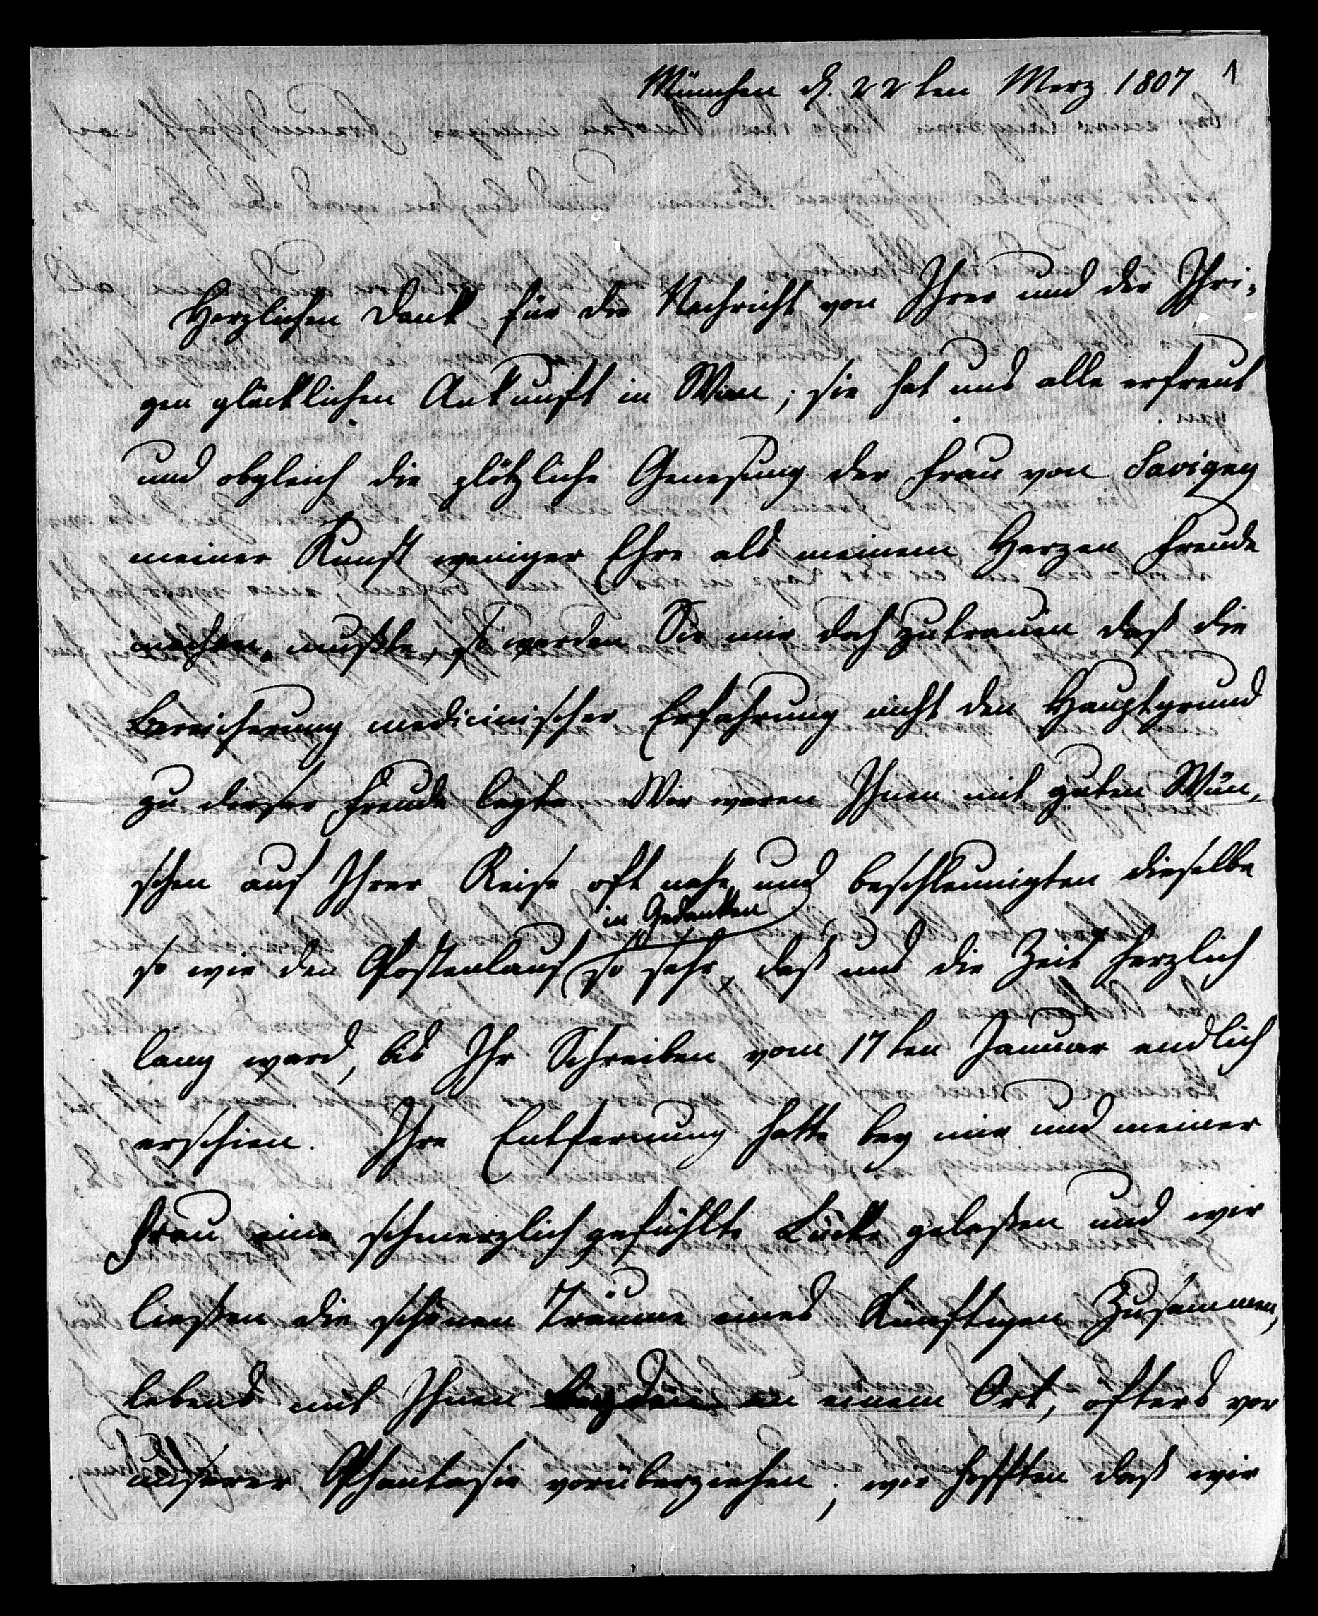 München d. 22ten Merz 1807 1
Herzlichen Dank für die Nachricht von Ihrer und der Ihri-
gen glücklichen Ankunft in Wien; sie hat uns alle erfreut
und obgleich die plötzliche Genesung der Frau von Savigny
meiner Kunst weniger Ehre als meinem Herzen Freude
machen mußte, so werden Sie mir doch zutrauen daß die
Bereicherung medicinischer Erfahrung nicht den Hauptgrund
zu dieser Freude legte. Wir waren Ihnen mit guten Wün-
schen auf Ihrer Reise oft nahe und beschleunigten dieselbe
in Gedanken
so wie den Postenlauf so sehr, daß uns die Zeit herzlich
lang ward, bis Ihr Schreiben vom 17ten Januar endlich
erschien. Ihre Entfernung hatte bey mir und meiner
Frau eine schmerzlich gefühlte Lücke gelaßen und wir
ließen die schönen Träume eines künftigen Zusammen-
lebens mit Ihnen an einem Ort, öfters vor
unserer Phantasie vorüberziehen; wir hofften daß wir